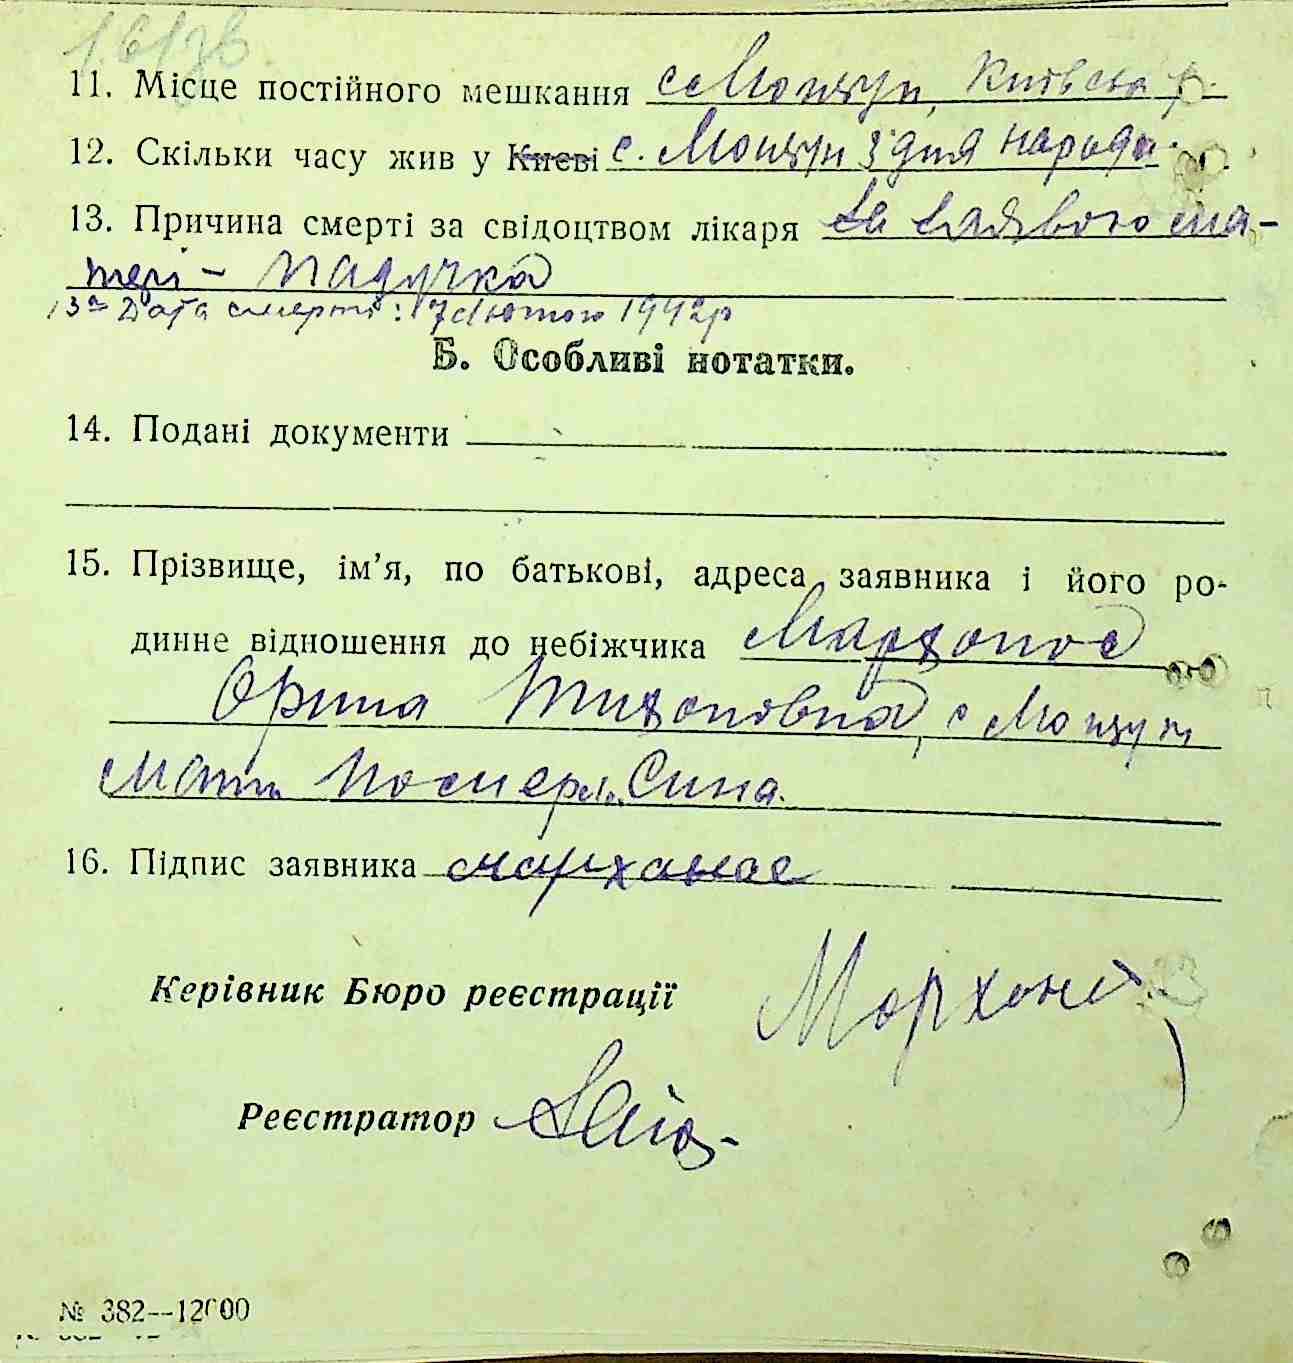 11. Місце постійного мешкання с. Мощун, Київська
12. Скільки часу жив у Києві с. Мощун з дня народж.
13. Причина смерті за свідоцтвом лікаря За заявою ма-
тері – Падучка
13а Дата смерти: 7 Лютого 1942р
Б. Особливі нотатки.
14. Подані документи
15. Прізвище, ім'я, по батькові, адреса заявника і його ро-
динне відношення до небіжчика Мархонос
Орина Тихонівна, с Мощун
Мати помер. Сина.
16. Підпис заявника мархонос
Керівник Бюро реєстрації
Реєстратор
№ 382—12000